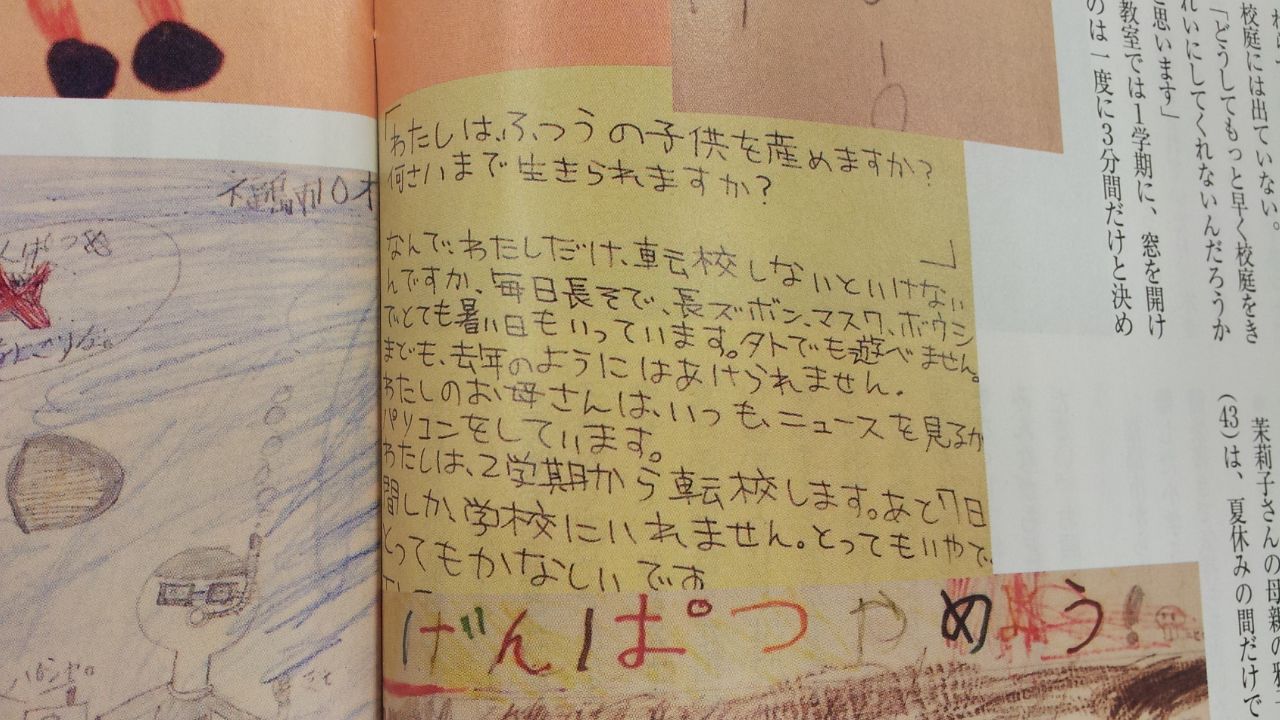 「わたしは、ふつうの子供を産めますか?
何さいまで生きられますか?
」
なんで、わたしだけ、転校しないといけない
んですか、毎日長そで、長ズボン、マスク、ボウシ
でとても暑い日もいっています。外でも遊べません。
までも、去年のようにはあけられません。
わたしのお母さんは、いつも、ニュースを見るか
パソコンをしています。
わたしは、2学期から転校します。あと7日
間しか、学校にいれません。とってもいやで、
とってもかなしいです
げんぱつやめよう!
校庭には出ていない。
「どうしてもっと早く校庭をき
れいにしてくれないんだろうか
と思います」
教室では1学期に、窓を開け
のは一度に3分間だけと決め
茉莉子さんの母親の
(43)は、夏休みの間だけで